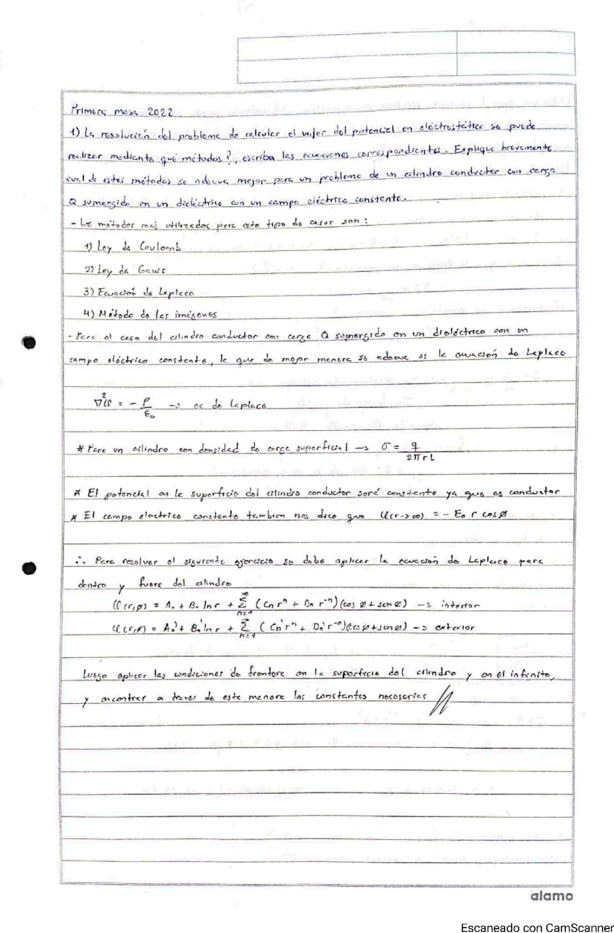 Primera mesa 2022
1) La resolución del problema de calcular el valor del potencial en electrostática se puede
realizar mediante qué métodos?, escriba las ecuaciones correspondientes. Explique brevemente
cual de estos métodos se adecua mejor para un problema de un cilindro conductor con carga
Q sumergido en un dieléctrico con un campo eléctrico constante.
- Los métodos más utilizados para este tipo de casos son:
1) Ley de Coulomb
2) Ley de Gauss
3) Ecuación de Laplace
4) Método de las imágenes
- Para el caso del cilindro conductor con carga Q sumergido en un dieléctrico con un
campo eléctrico constante, la que de mejor manera se adecua es la ecuación de Laplace
∇²φ = - ρ/ε₀ → ec de Laplace
* Para un cilindro con densidad de carga superficial → σ = q/2πrL
* El potencial en la superficie del cilindro conductor será constante ya que es conductor
* El campo electrico constante tambien nos dice que φ(r→∞) = - E₀ r cos ø
∴ Para resolver el siguiente ejercicio se debe aplicar la ecuación de Laplace para
dentro y fuera del cilindro
φ(r,ø) = A₀ + B₀ ln r + ∞Σn=1 (Cn rⁿ + Dn r⁻ⁿ)(cos ø + sen ø) → interior
φ(r,ø) = A₀' + B₀' ln r + ∞Σn=1 (Cn' rⁿ + Dn' r⁻ⁿ)(cos ø + sen ø) → exterior
Luego aplicar las condiciones de frontera en la superficie del cilindro y en el infinito,
y encontrar a traves de esta manera las constantes necesarias
alamo
Escaneado con CamScanner